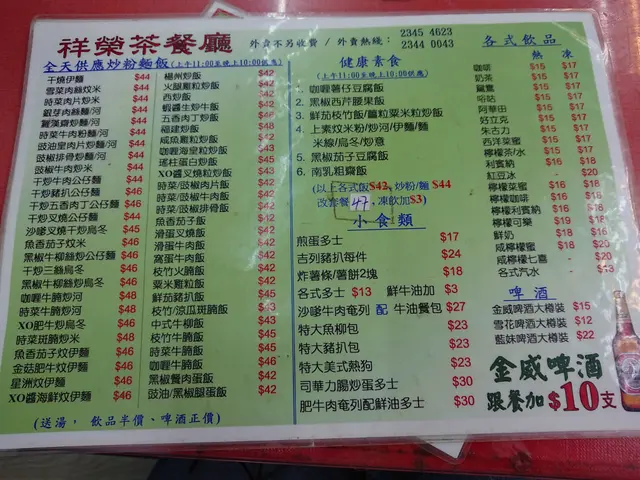 祥榮茶餐廳
外賣不另收費 / 外賣熱線:
2345 4623
2344 0043
全天供應炒粉麵飯(上午11:00至晚上10:00供應)
干燒伊麵 $44
雪菜肉絲炆米 $44
時菜肉片炒米 $44
銀芽肉絲炒麵 $44
羅漢齋炒麵/河 $44
時菜牛肉粉麵/河 $44
豉油皇肉片炒麵/河 $44
豉椒排骨炒麵/河 $44
豉椒牛肉炒米 $44
干炒牛肉公仔麵 $44
干炒豬扒公仔麵 $46
干炒五香肉丁公仔麵 $46
干炒叉燒公仔麵 $44
沙嗲叉燒干炒烏冬 $45
魚香茄子炆米 $46
黑椒牛柳絲炒公仔麵 $46
干炒三絲烏冬 $46
黑椒牛柳絲炒伊麵 $46
咖喱牛腩炒河 $48
時菜牛腩炒河 $48
XO肥牛炒烏冬 $46
時菜斑腩炒米 $48
魚香茄子炆伊麵 $46
金菇肥牛炆伊麵 $46
星洲炆伊麵 $46
XO醬海鮮炆伊麵 $46
(送湯, 飲品半價、啤酒正價)
楊州炒飯 $42
火腿雞粒炒飯 $42
西炒飯 $42
蝦醬生炒牛飯 $42
五香肉丁炒飯 $42
福建炒飯 $48
咸魚雞粒炒飯 $42
咖喱海皇粒炒飯 $43
瑤柱蛋白炒飯 $45
XO醬叉燒粒炒飯 $43
時菜/豉椒肉片飯 $42
時菜/豉椒牛肉飯 $42
時菜/豉椒排骨飯 $42
魚香茄子飯 $42
滑蛋叉燒飯 $42
滑蛋牛肉飯 $42
窩蛋牛肉飯 $42
枝竹火腩飯 $42
粟米雞粒飯 $42
鮮茄豬扒飯 $45
枝竹/涼瓜斑腩飯 $43
中式牛柳飯 $43
枝竹牛腩飯 $45
時菜牛腩飯 $46
咖喱牛腩飯 $46
黑椒餐肉蛋飯 $42
豉油/黑椒腿蛋飯 $42
健康素食
(上午11:00至晚上10:00供應)
1. 咖喱薯仔豆腐飯
2. 黑椒西芹腰果飯
3. 鮮茄枝竹飯/臚粒粟米粒炒飯
4. 上素炆米粉/炒河/伊麵/麵
米線/烏冬/炒意
5. 黑椒茄子豆腐飯
6. 南乳粗齋飯
(以上各式飯$43, 炒粉/麵 $44
改套餐 47, 凍飲加$3)
小食類
煎蛋多士 $17
吉列豬扒每件 $24
炸薯條/薯餅2塊 $18
各式多士 $13 鮮牛油加 $3
沙嗲牛肉奄列 配 牛油餐包 $27
特大魚柳包 $23
特大豬扒包 $23
特大美式熱狗 $23
司華力腸炒蛋多士 $30
肥牛肉奄列配鮮油多士 $30
各式飲品
熱 凍
咖啡 $15 $17
奶茶 $15 $17
鴛鴦 $15 $17
唂咕 $15 $17
阿華田 $15 $17
好立克 $15 $17
朱古力 $15 $17
西洋菜蜜 $15 $17
檸檬茶/水 $15 $17
利賓納 $16 $18
紅豆冰 - $20
檸檬菜蜜 $16 $18
檸檬咖啡 $16 $18
檸檬利賓納 $16 $18
檸檬可樂 $19 $18
鮮奶 $16 $18
咸檸檬蜜 $18 $20
咸檸檬七喜 - $20
各式汽水 - $13
啤酒
金威啤酒大樽裝 $15
雪花啤酒大樽裝 $12
藍妹啤酒大樽裝 $22
金威啤酒
跟餐加$10支